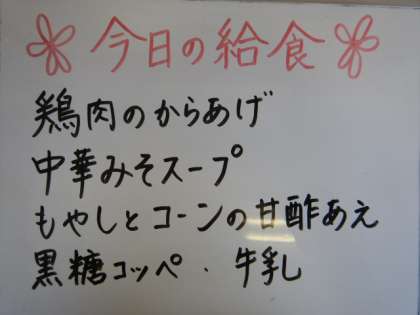 今日の給食
鶏肉のからあげ
中華みそスープ
もやしとコーンの甘酢あえ
黒糖コッペ・牛乳